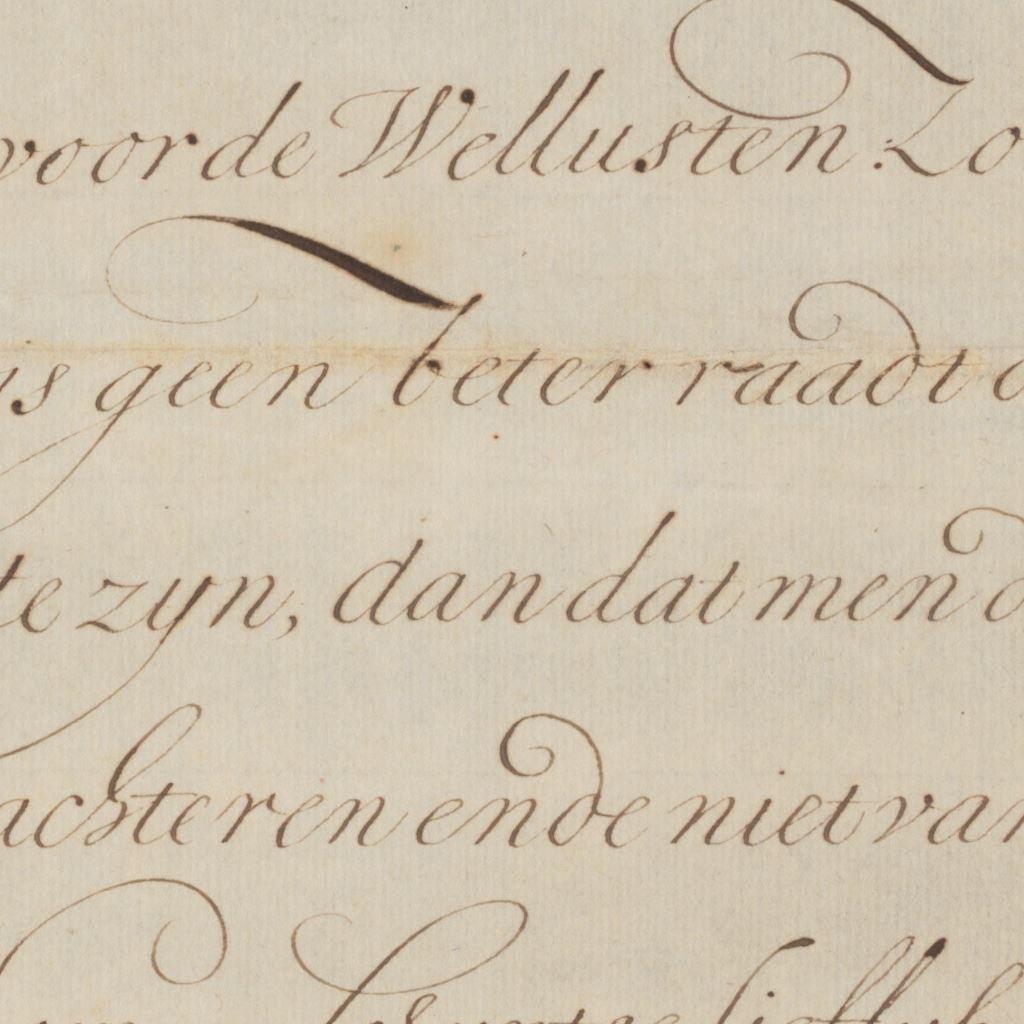 voor de Wellusten. Zo
is geen beter raadt o
te zyn, dan dat men d
achteren ende niet van